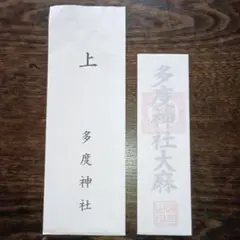 上
多度神社
多度神社大麻